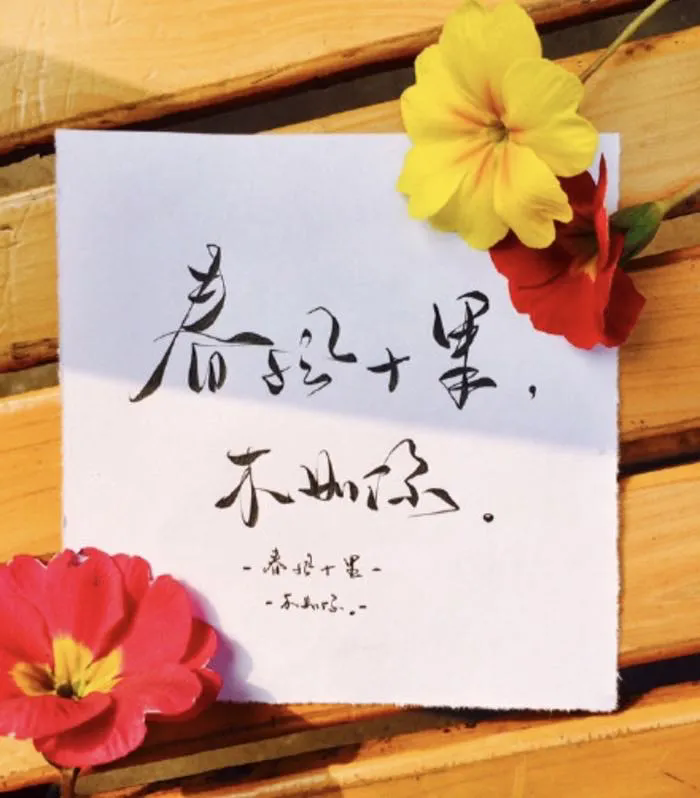 春风十里，
不如你。
-春风十里-
-不如你。-